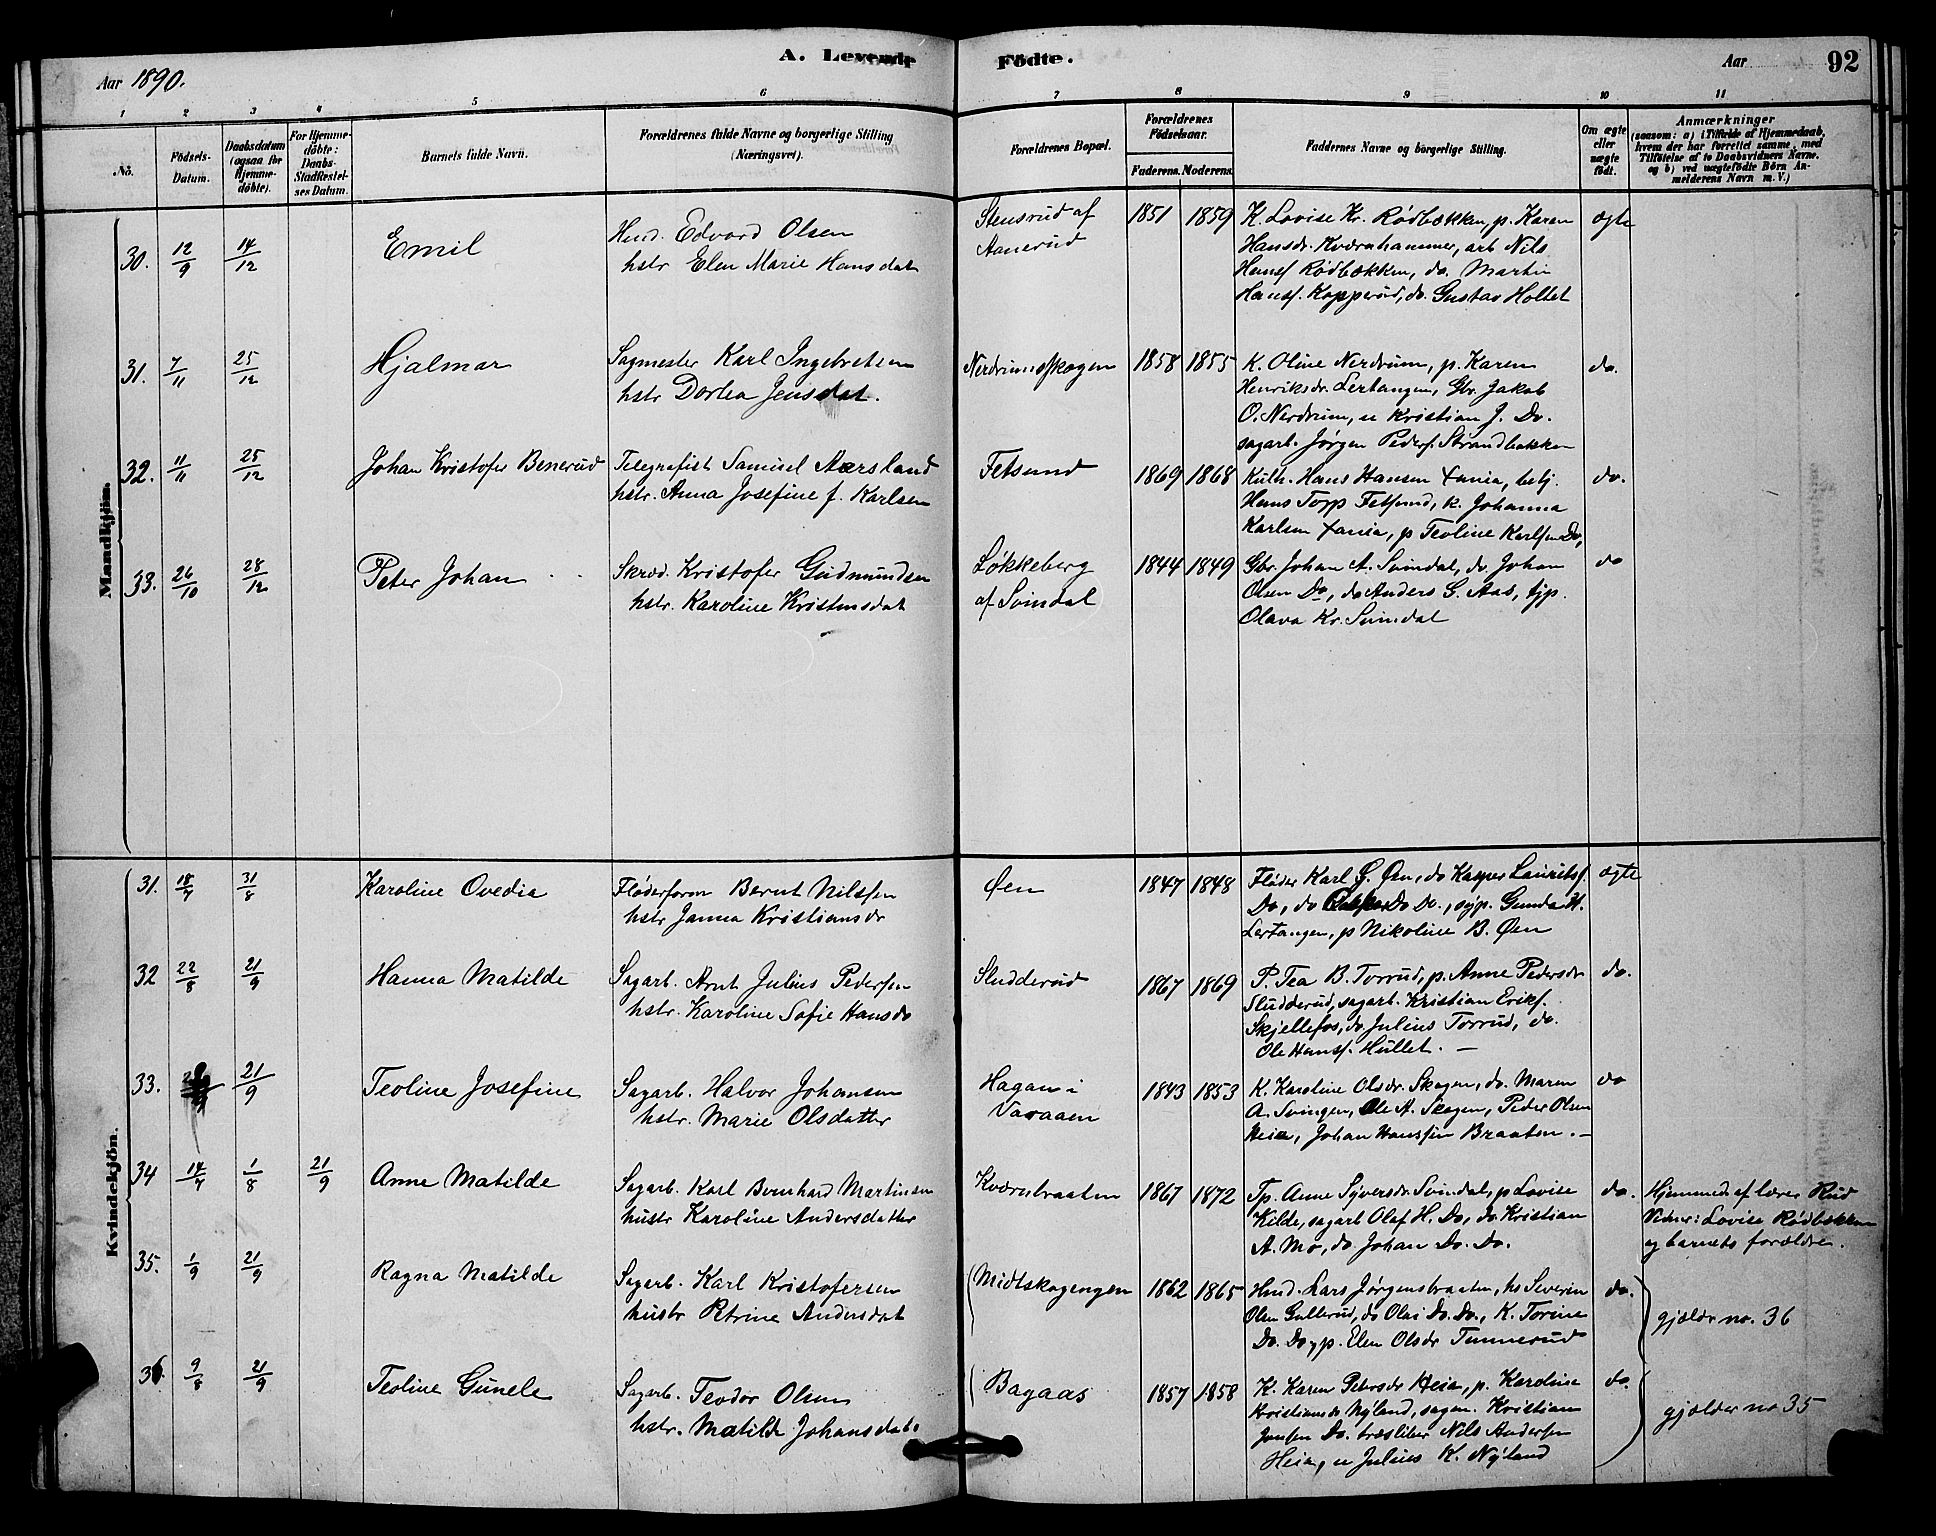 Aar 1890.
A. Levende Födte.
Aar
92
1 2 3 4 5 6 7 8 9 10 11
No.
Födsels-
Datum.
Daabsdatum
(ogsaa for
Hjemme-
döbte).
For Hjemme-
döbte:
Daabs-
Stadfæstel-
ses Datum.
Barnets fulde Navn.
Forældrenes fulde Navne og borgerlige Stilling
(Næringsvei).
Forældrenes Bopæl.
Forældrenes
Födselsaar.
Faderens. Moderens.
Faddernes Navne og borgerlige Stilling.
Om ægte
eller
uægte
födt.
Anmærkninger
(saasom: a) i Tilfælde af Hjemmedaab,
hvem der har forrettet samme, med
Tilföielse af to Daabsvidners Navne.
og b) ved uægtefödte Börn An-
melderens Navn m. V.)
Mandkjön.
30. 12/9 14/12 Emil
Hmd. Edvard Olsen
hstr Elen Marie Hansdat
Stensrud af
Aanerud
1851 1859
K. Lovise Kr. Rødbækken, p. Karen
Hansdr. Kværnhammer, arb Nils
Hansf Rødbækken, do. Martin
Hansf. Kopperud, do. Gustav Holtet
ægte
31. 7/11 25/12 Hjalmar
Sagmester Karl Ingebretsen
hstr Dortea Jensdat.
Nerdrumsskogen
1858 1855
K. Oline Nerdrum, p. Karen
Henriksdr. Lertangen, Gbr. Jakob
O. Nerdrum, u Kristian J. Do.
sagarb. Jørgen Pedersf. Strandbakken
do.
32. 11/11 25/12 Johan Kristofer Benerud
Telegrafist Samuel Aarsland
hstr. Anna Josefine f. Karlsen
Fetsund
1869 1868
Kuth. Hans Hansen Xania, betj.
Hans Torp Fetsund, k. Johanna
Karlsen Xania, p Teoline Karlsen Do,
do.
33. 26/10 28/12 Peter Johan
Skræd. Kristofer Gudmundsen
hstr. Karoline Kristensdat
Løkkeberg
af Svindal
1844 1849
Gbr. Johan A. Svindal, do. Johan
Olsen Do, do Anders G. Aas, tjp.
Olava Kr. Svindal
do
Kvindekjön.
31. 18/7 31/8 Karoline Ovedia
Fløderform Bernt Nilssen
hstr Janna Kristiansdr
Øen
1847 1848
Fløder Karl G. Øen, do Kasper Lauritsf.
Do, do Do Do., syp. Gunda H.
Lertangen, p Nikoline B. Øen
ægte
32 22/8 21/9 Hanna Matilde
Sagarb. Arnt Julius Pedersen
hstr. Karoline Sofie Hansdr
Sludderud
1867 1869
P. Tea B. Torrud, p. Anne Pedersdr
Sludderud, sagarb. Kristian Eriks.
Skjellefos, do Julius Torrud, do.
Ole Hansf. Hullet. —
do.
33. 21/9 Teoline Josefine
Sagarb. Halvor Johansen
hstr. Marie Olsdatter
Hagan i
Varaaen
1843 1853
K. Karoline Olsdr. Skogen, do. Maren
A. Svingen, Ole A. Skogen, Peder Olsen
Heia, Johan Hanssen Braaten. —
do
34 14/7 1/8 21/9 Anne Matilde
Sagarb. Karl Bernhard Martinsen
hustr Karoline Andersdatter
Kværnbraaten
1867 1872
Tp. Anne Syversdr Svindal, p Lovise
Kilde, sagarb Olaf H. Do, do Kristian
A. Mo, do Johan Do. Do.
do.
Hjemmed af lærer Rud
Vidner: Lovise Rødbækken
og barnets forældre.
35. 1/9 21/9 Ragna Matilde
Sagarb. Karl Kristofersen
hustr Petrine Andersdat
Midtskogengen
1862 1865
Hmd. Lars Jørgensbraaten, hs Severin
Olsen Gullerud, do Olai Do. Do., K. Torine
Do. Do, p. Elen Olsdr Tunnerud
do.
gjælder no. 36
36. 9/8 21/9 Teoline Gunele
Sagarb. Teodor Olsen
hstr. Matilde Johansdat.
Bagaas
1857 1858
K. Karen Petersdr Heia, p. Karoline
Kristiansdr Nyland, sagm. Kristian
Jensen Do. træsliber Nils Andersen
Heia, u Julius K. Nyland
do.
gjælder no 35